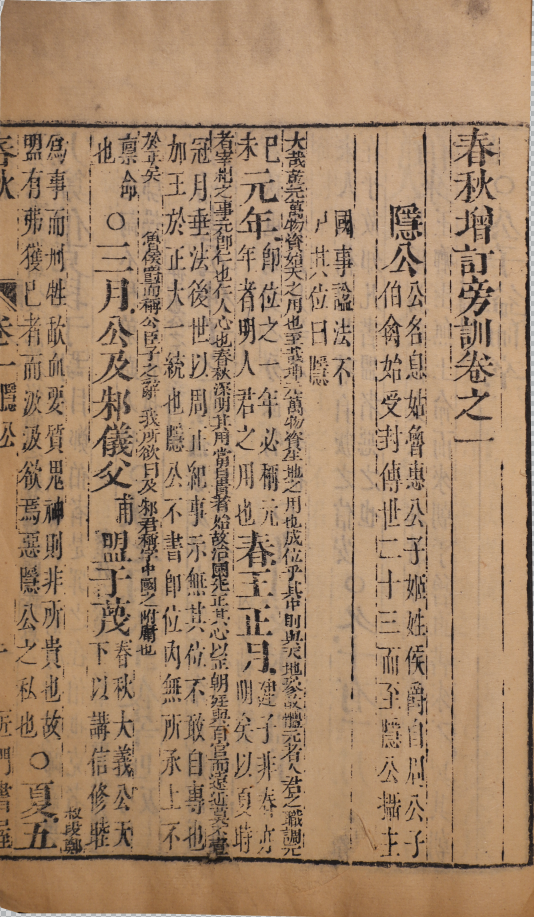 春秋增訂旁訓卷之一
隱公
公名息姑魯惠公子姬姓侯爵自周公子
伯禽始受封傳世二十三而至隱公攝主
國事謚法不
尸其位曰隱
大哉乾元萬物資始天之用也至哉坤元萬物資生地之用也成位乎其中則與天地參故體元者人君之職調元
己未
元年
即位之一年必稱元
年者明人君之用也
春王正月
建子非春亦
明矣以夏時
者宰相之事元即仁也仁人心也春秋深明其用當自貴者始故治國先正其心以正朝廷與百官而遠近莫不壹
冠月垂法後世以周正紀事示無其位不敢自專也
加王於正大一統也隱公不書即位內無所承上不
於正矣 魯侯爵而稱公臣子之辭 我所欲曰及 邾君稱字中國之附庸也
稟命
也
○三月公及邾儀父
甫
盟于蔑
春秋大義公天
下以講信修睦
叔段鄭
爲事而刑牲歃血要質鬼神則非所貴也故
盟有弗獲已者而汲汲欲焉惡隱公之私也
○夏五
春秋
卷一
隱公